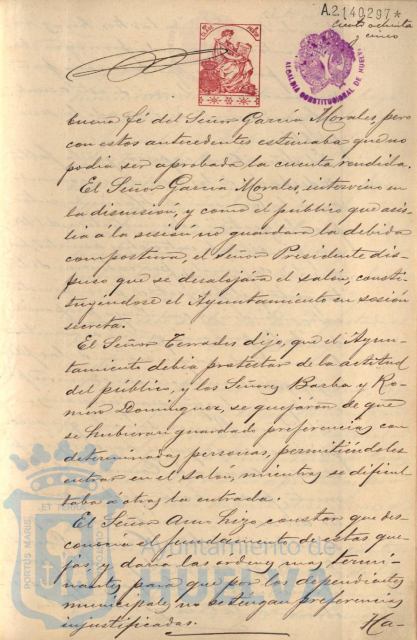 A.2140297*
Ciento ochenta
y cinco
ALCALDIA CONSTITUCIONAL DE HUELVA
buena fé del Señor García Morales, pero
con estos antecedentes estimaba que no
podia ser aprobada la cuenta rendida.
El Señor García Morales, intervino en
la discusión, y como el público que asis-
tia á la sesión no guardara la debida
compostura, el Señor Presidente dis-
puso que se desalojára el salón, consti-
tuyéndose el Ayuntamiento en sesión
secreta.
El Señor Terrades dijo, que el Ayun-
tamiento debia protestar de la actitud
del público, y los Señores Barba y Ro-
mero Dominguez, se quejáron de que
se hubieran guardado preferencias con
determinadas personas, permitiéndoles
entrar en el salón, mientras se dificul-
taba á otras la entrada.
El Señor hizo constar que des-
conocia el fundamento de estas que-
jas y daria las ordenes mas termi-
nantes para que por los dependientes
municipales no se tengan preferencias
injustificadas.
Ha-
PORTUS MARIS
ET
Ayuntamiento de
HUELVA